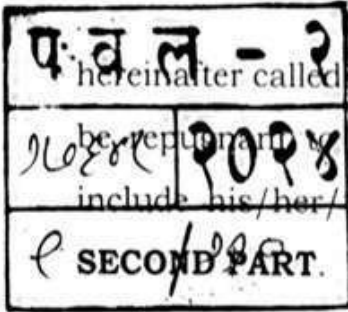 पवल - २
hereinafter called
be repugnant to
२०२४
include his/her/
SECOND PART.